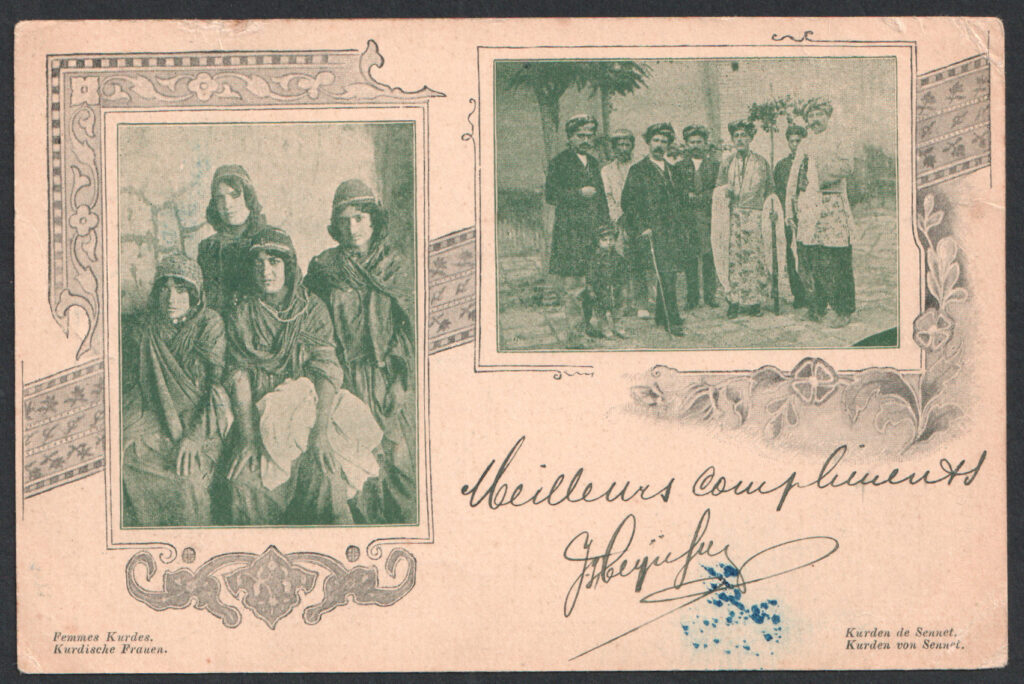 Meilleurs compliments
Femmes Kurdes.
Kurdische Frauen.
Kurden de Sennet.
Kurden von Sennet.